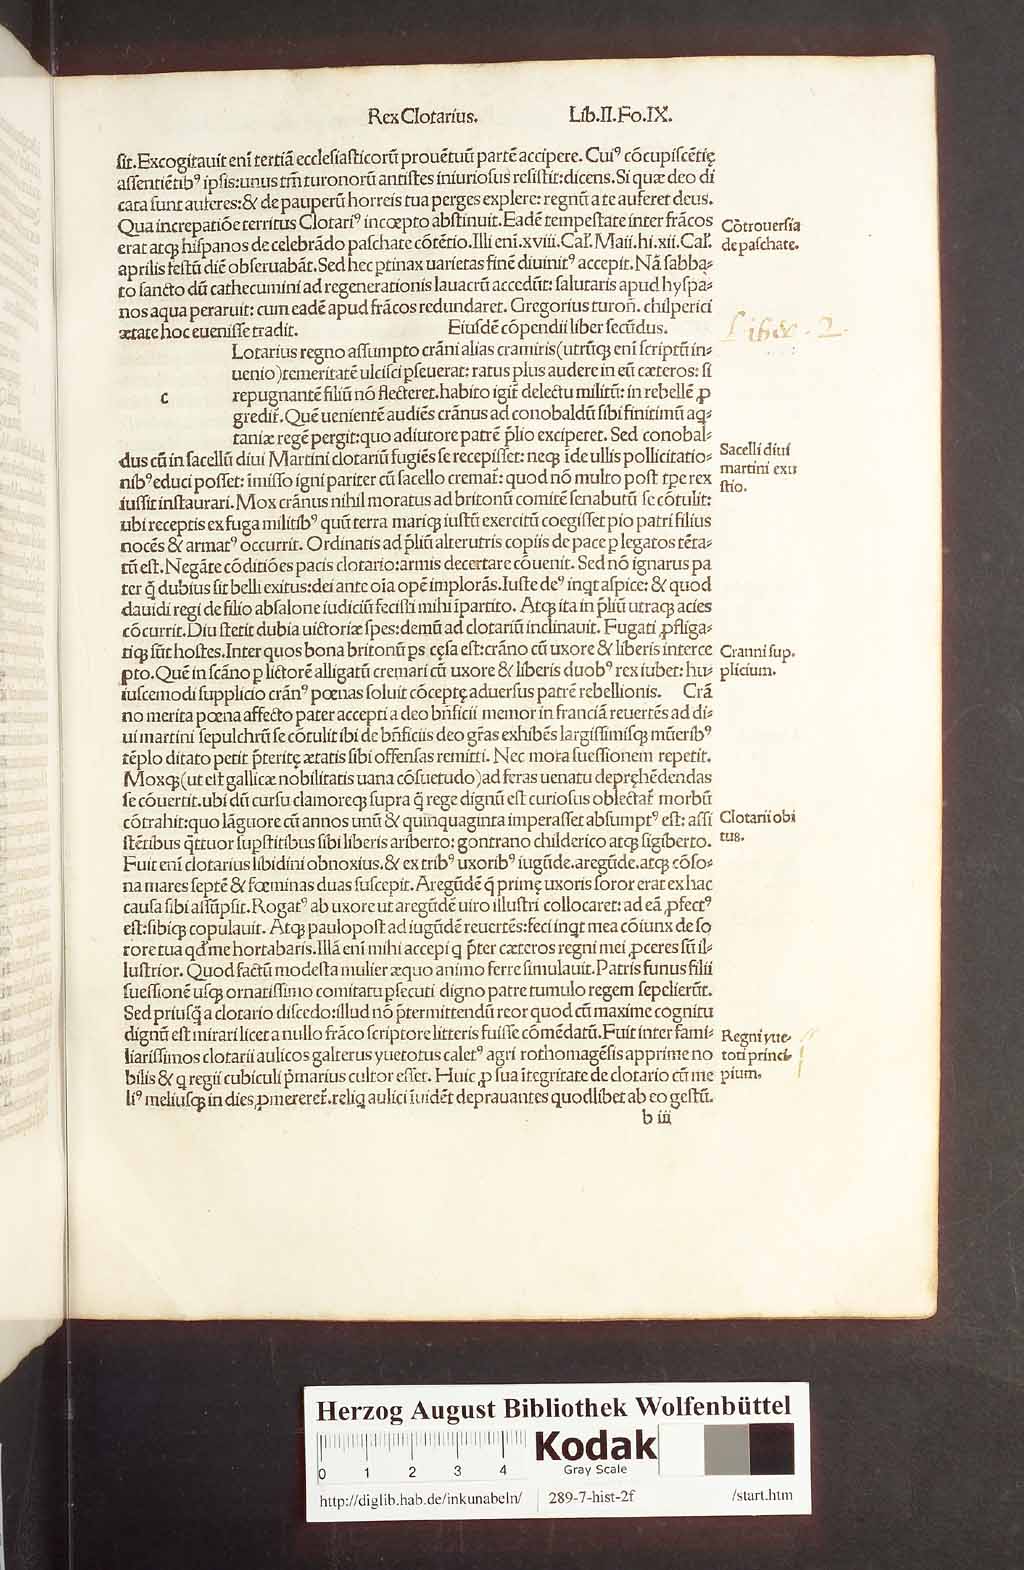 Rex Clotarius. Lib.II.Fo.IX.
sit. Excogitauit enī tertiā ecclesiasticorū prouētuū partē accipere. Cuiꝰ cōcupiscētię
assentiētibꝰ ipsis: unus tm̄ turonorū antistes iniuriosus resistit: dicens. Si quæ deo di
cata sunt auferes: & de pauperū horreis tua perges explere: regnū a te auferet deus.
Qua increpatiōe territus Clotariꝰ incœpto abstinuit. Eadē tempestate inter frācos
erat atqꝫ hispanos de celebrādo paschate cōtētio. Illi enī .xviii. Cal'. Maii. hi .xii. Cal'.
aprilis festū diē obseruabāt. Sed hec ptinax uarietas finē diuinitꝰ accepit. Nā sabba⸗
to sancto dū cathecumini ad regenerationis lauacrū accedūt: salutaris apud hyspa⸗
nos aqua peraruit: cum eadē apud frācos redundaret. Gregorius turoñ. chilperici
ætate hoc euenisse tradit. Eiusdē cōpendii liber secūdus.
Cōtrouersia
de paschate.
Liber . 2 .
c
Lotarius regno assumpto crāni alias cramiris (utrūqꝫ enī scriptū in⸗
uenio) temeritatē ulcisci pseuerat: ratus plus audere in eū cæteros: si
repugnantē filiū nō flecteret. habito igit̄ delectu militū: in rebellē ꝓ
gredit̄. Quē uenientē audiēs crānus ad conobaldū sibi finitimū aq⸗
taniæ regē pergit: quo adiutore patrē p̄lio exciperet. Sed conobal⸗
dus cū in sacellū diui Martini clotariū fugiēs se recepisset: neqꝫ īde ullis pollicitatio⸗
nibꝰ educi posset: īmisso igni pariter cū sacello cremat̄: quod nō multo post tp̄e rex
iussit instaurari. Mox crānus nihil moratus ad britonū comitē senabutū se cōtulit:
ubi receptis ex fuga militibꝰ quū terra mariqꝫ iustū exercitū coegisset pio patri filius
nocēs & armatꝰ occurrit. Ordinatis ad p̄liū alterutris copiis de pace p legatos tēta⸗
tū est. Negāte cōditiōes pacis clotario: armis decertare cōuenit. Sed nō ignarus pa
ter q̄ dubius sit belli exitus: dei ante oīa opē implorās. Iuste deꝰ inqt aspice: & quod
dauidi regi de filio absalone iudiciū fecisti mihi īpartito. Atqꝫ ita in p̄liū utraqꝫ acies
cōcurrit. Diu stetit dubia uictoriæ spes: demū ad clotariū inclinauit. Fugati ꝓfliga⸗
tiqꝫ sūt hostes. Inter quos bona britonū ps cęsa est: crāno cū uxore & liberis interce
pto. Quē in scāno p lictorē alligatū cremari cū uxore & liberis duobꝰ rex iubet: hu⸗
iuscemodi supplicio crānꝰ pœnas soluit cōceptę aduersus patrē rebellionis. Crā
no merita pœna affecto pater accepti a deo bn̄ficii memor in franciā reuertēs ad di⸗
ui martini sepulchrū se cōtulit ibi de bn̄ficiis deo gr̄as exhibēs largissimisqꝫ mūeribꝰ
tēplo ditato petit p̄teritę ætatis sibi offensas remitti. Nec mora suessionem repetit.
Moxqꝫ (ut est gallicæ nobilitatis uana cōsuetudo) ad feras uenatu depręhēdendas
se cōuertit. ubi dū cursu clamoreqꝫ supra q̄ rege dignū est curiosus oblectat̄ morbū
cōtrahit: quo lāguore cū annos unū & quinquaginta imperasset absumptꝰ est: assi
stētibus q̄ttuor supstitibus sibi liberis ariberto: gontrano childerico atqꝫ sigiberto.
Fuit enī clotarius libidini obnoxius. & ex tribꝰ uxoribꝰ iugūde. aregūde. atqꝫ cōso⸗
na mares septē & fœminas duas suscepit. Aregūdē q̄ primę uxoris soror erat ex hac
causa sibi assūpsit. Rogatꝰ ab uxore ut aregūdē uiro illustri collocaret: ad eā ꝓfectꝰ
est: sibiqꝫ copulauit. Atqꝫ paulopost ad iugūdē reuertēs: feci inqt mea cōiunx de so
rore tua qd̄ me hortabaris. Illā enī mihi accepi q p̄ter cæteros regni mei ꝓceres sū il⸗
lustrior. Quod factū modesta mulier æquo animo ferre simulauit. Patris funus filii
suessionē usqꝫ ornatissimo comitatu psecuti digno patre tumulo regem sepelierūt.
Sed priusq̄ a clotario discedo: illud nō p̄termittendū reor quod cū maxime cognitu
dignū est mirari licet a nullo frāco scriptore litteris fuisse cōmēdatū. Fuit inter fami⸗
liarissimos clotarii aulicos galterus yuetotus caletꝰ agri rothomagēsis apprime no
bilis & q regii cubiculi p̄marius cultor esset. Huic ꝓ sua ītegritate de clotario cū me
liꝰ meliusqꝫ in dies ꝓmereret̄. reliq aulici īuidēt deprauantes quodlibet ab eo gestū.
b iii
Sacelli diui
martini exu
stio.
Cranni sup.
plicium.
Clotarii obi
tus.
Regni yue⸗
toti princi⸗
pium.
Herzog August Bibliothek Wolfenbüttel
0 1 2 3 4
Kodak
Gray Scale
http://diglib.hab.de/inkunabeln/ 289-7-hist-2f /start.htm